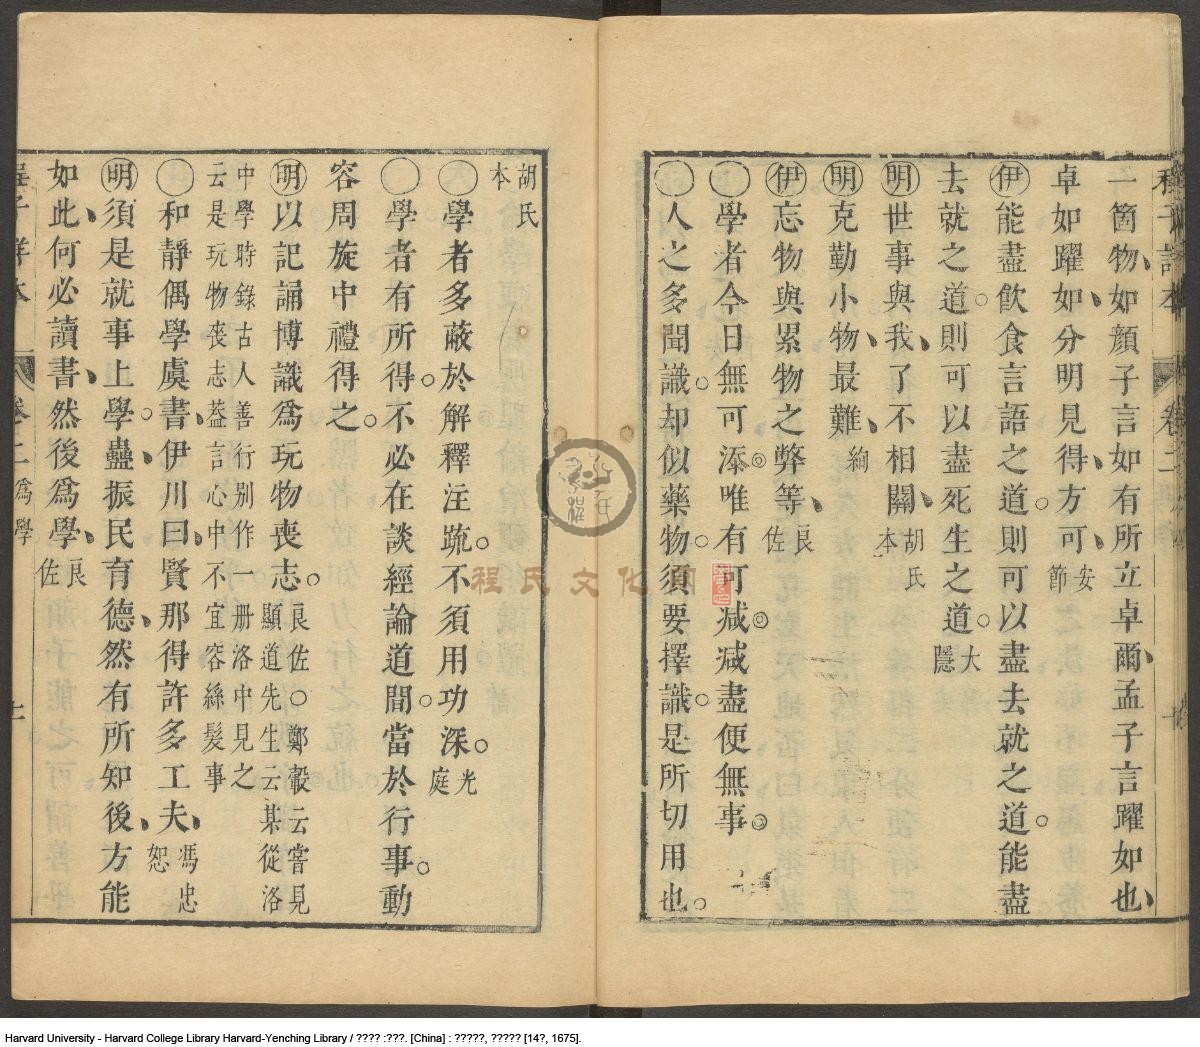 一箇物如顔子言如有所立卓爾孟子言躍如也
卓如躍如分明見得方可安節
伊能盡飲食言語之道則可以盡去就之道能盡
去就之道則可以盡死生之道大隱
明世事與我了不相關胡氏本
明克勤小物最難絢
伊忘物與累物之弊等良佐
○學者今日無可添唯有可减减盡便無事
○人之多聞識却似藥物須要擇識是所切用也
胡氏本
○學者多蔽於解釋注䟽不須用功深光庭
○學者有所得不必在談經論道間當於行事動
容周旋中禮得之
明以記誦博識為玩物喪志良佐○鄭轂云嘗見顯道先生云某從洛
中學時錄古人善行别作一册洛中見之云是玩物丧志葢言心中不宜容絲髮事
○和靜偶學虞書伊川曰賢那得許多工夫馮忠恕
明須是就事上學蠱振民育德然有所知後方能
如此何必讀書然後為學良佐
卷二為學
程氏文化
Harvard University - Harvard College Library Harvard-Yenching Library / ???? :???. [China] : ?????, ????? [14?, 1675].